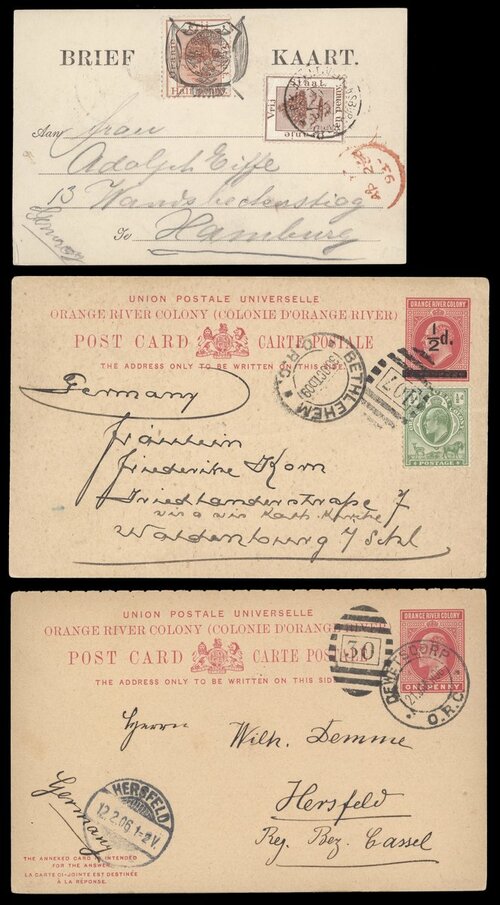 BRIEF KAART.
Vrij
Half Penny
Vrij
Staat
Een penny
Oranje
Aan Frau
Adolph Eiffe
13 Wandsbeckerstieg
Te Hamburg
Germany
AP 28
93
UNION POSTALE UNIVERSELLE
ORANGE RIVER COLONY (COLONIE D'ORANGE RIVER)
POST CARD CARTE POSTALE
THE ADDRESS ONLY TO BE WRITTEN ON THIS SIDE.
ORANGE RIVER COLONY
1/2d.
BETHLEHEM
O.R.C.
POSTAGE
Germany
Fräulein
Friederike Korn
Friedländerstraße 7
vis a vis Kath. Kirche
Waldenburg / Schl
UNION POSTALE UNIVERSELLE
ORANGE RIVER COLONY (COLONIE D'ORANGE RIVER
POST CARD CARTE POSTALE
THE ADDRESS ONLY TO BE WRITTEN ON THIS SIDE
30
ORANGE RIVER COLONY
ONE PENNY
DEWETSDORP
O.R.C.
Herrn Wilh. Demme
Hersfeld
Reg. Bez. Cassel
Germany
HERSFELD
12.2.06.1-2V.
THE ANNEXED CARD IS INTENDED
FOR THE ANSWER.
LA CARTE CI-JOINTE EST DESTINÉE
À LA RÉPONSE.